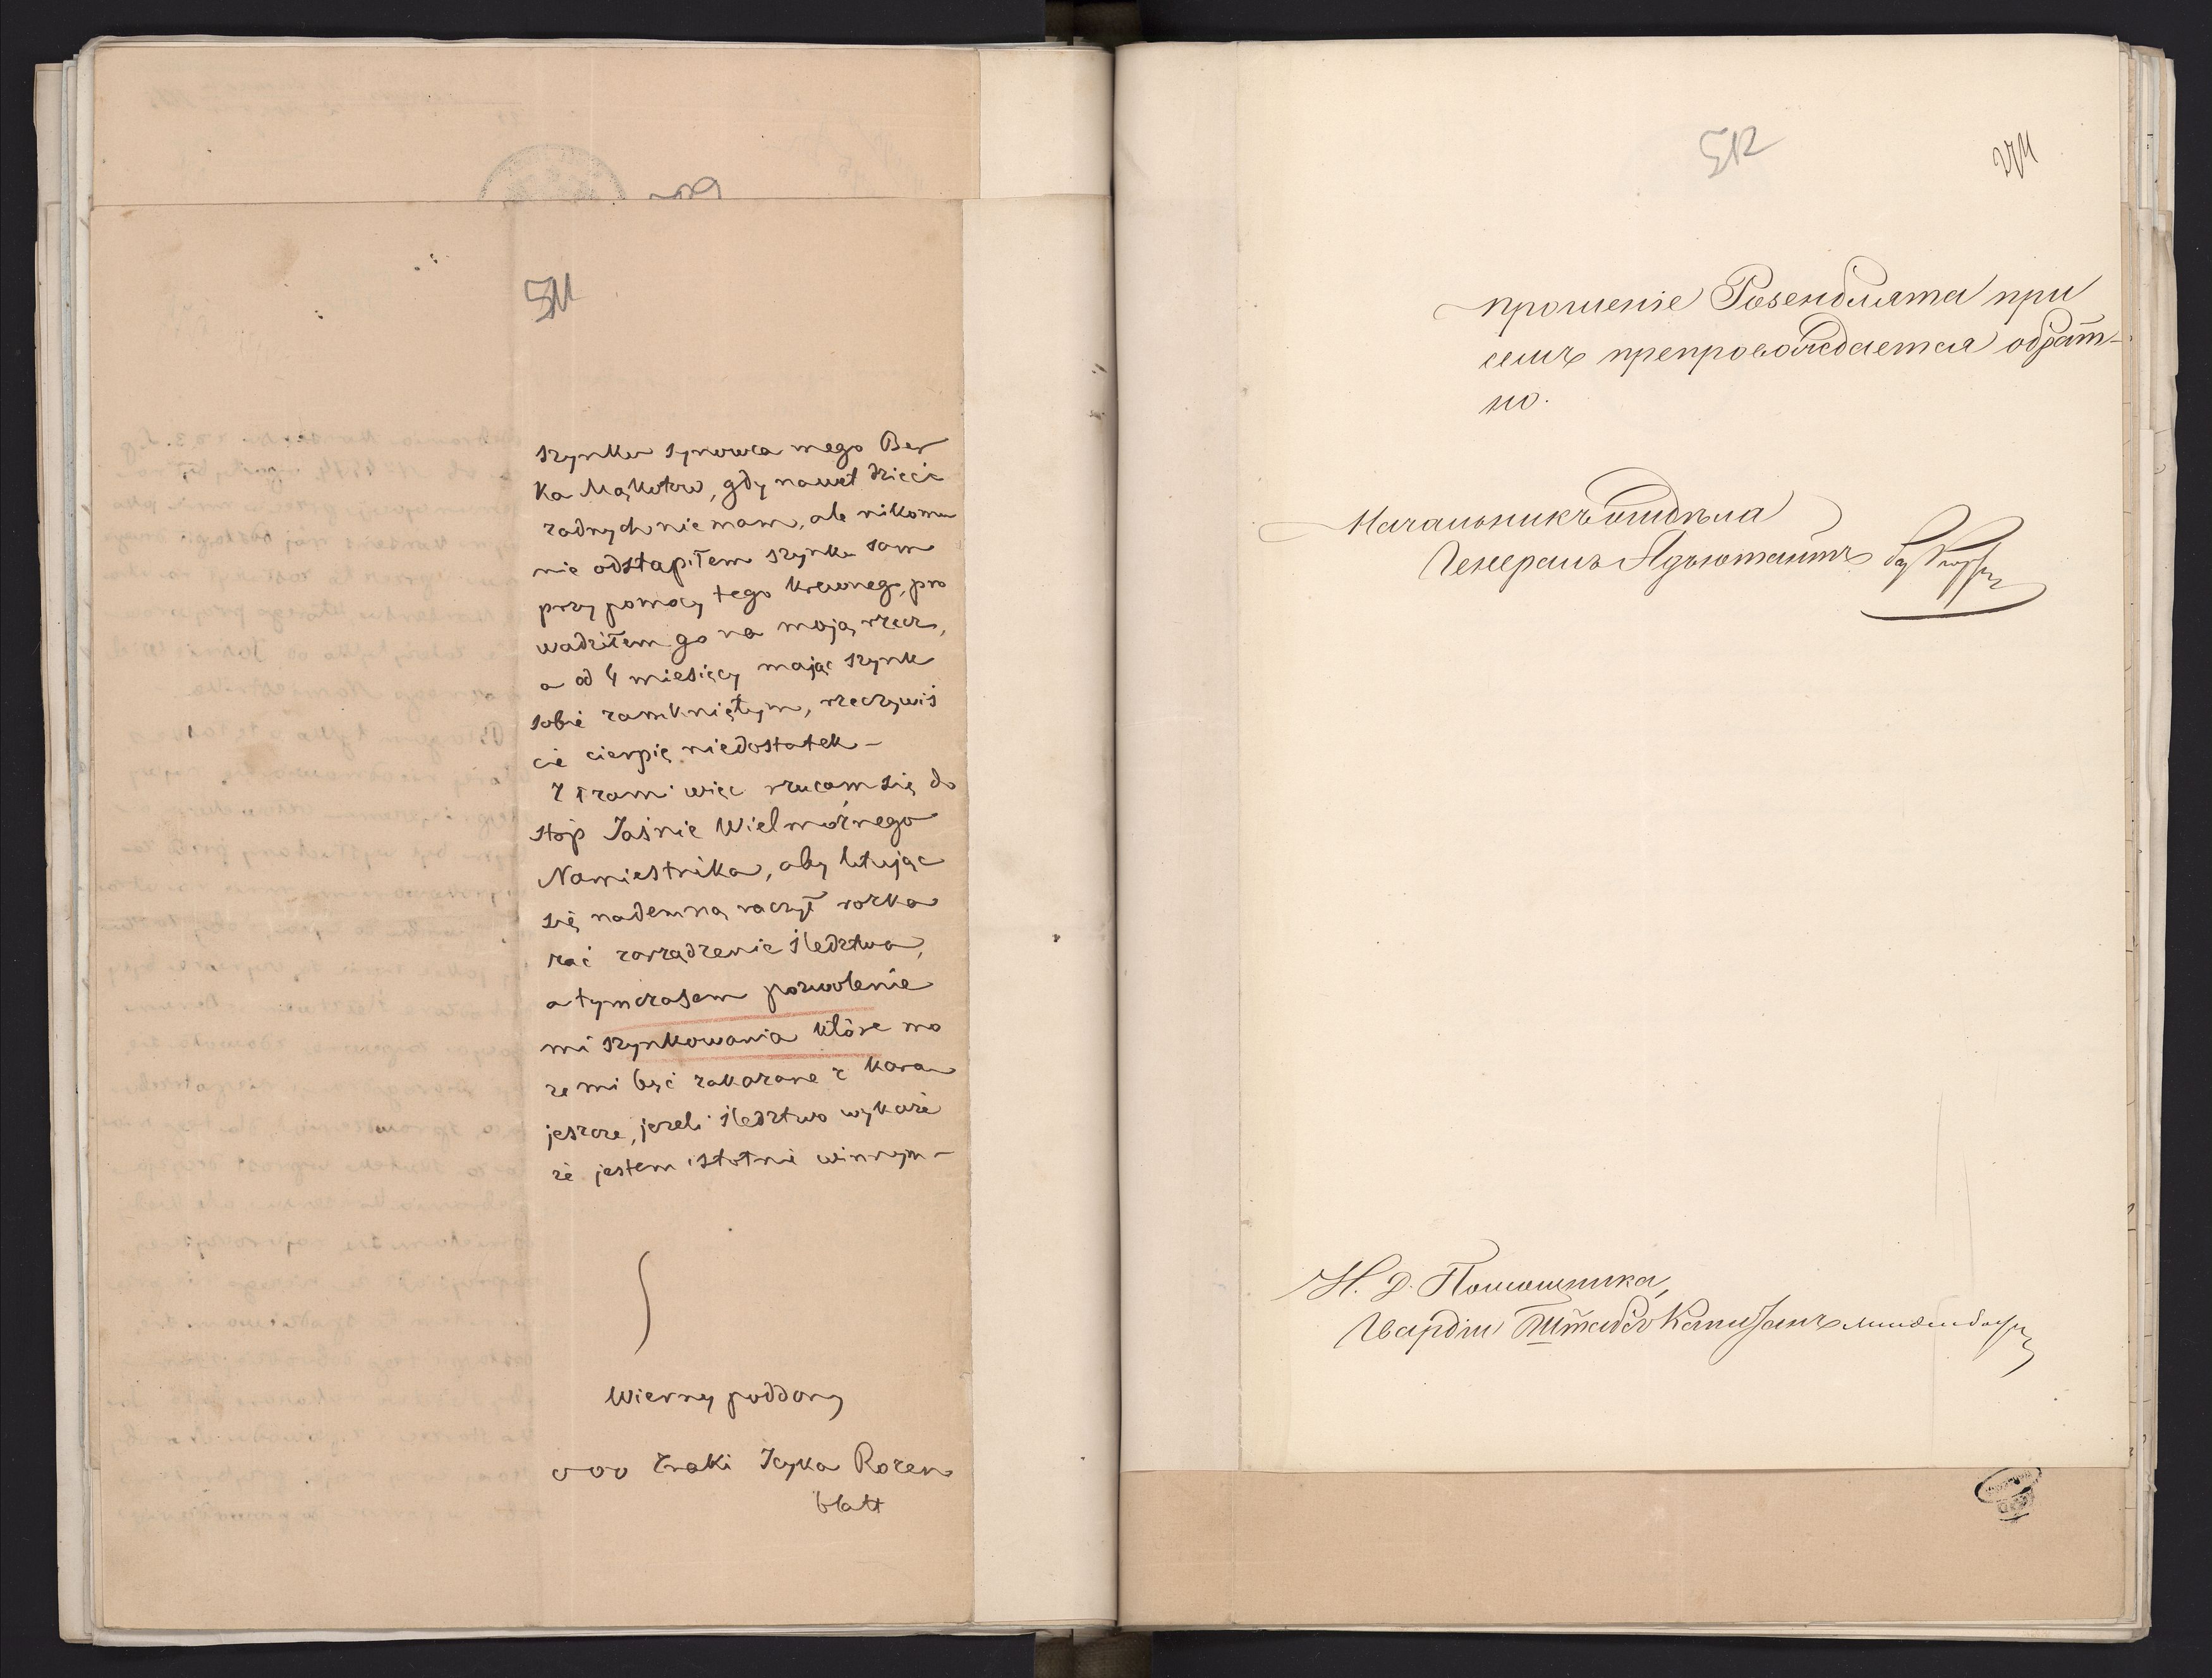 511
szynku synowca mego Ber
ka Mąkotow, gdy nawet dzieci
zadnych nie mam, ale nikomu
nie odstąpiłem szynku sam
przy pomocy tego krewnego, pro
wadziłem go na moją rzecz,
a od 4 miesięcy mając szynk
sobie zamkniętym, rzeczywiś
cie cierpię niedostatek –
Z łzami więc rzucam się do
stóp Jaśnie Wielmożnego
Namiestnika, aby litując
się nademną raczył rozka
zać zarządzenie śledztwa,
a tymczasem pozwolenie
mi szynkowania które mo
ze mi być zakazane z karą
jeszcze, jezeli śledztwo wykaże
że jestem istotnie winnym –
Wierny poddany
ooo Znaki Icyka Rozen
blatt
512
прошеніе Розенблята при
семъ препровождается обрат-
но.
Начальникъ отдѣла
Генералъ Адъютантъ
И. Д. Помощника,
Гвардіи Штабсъ Капитанъ